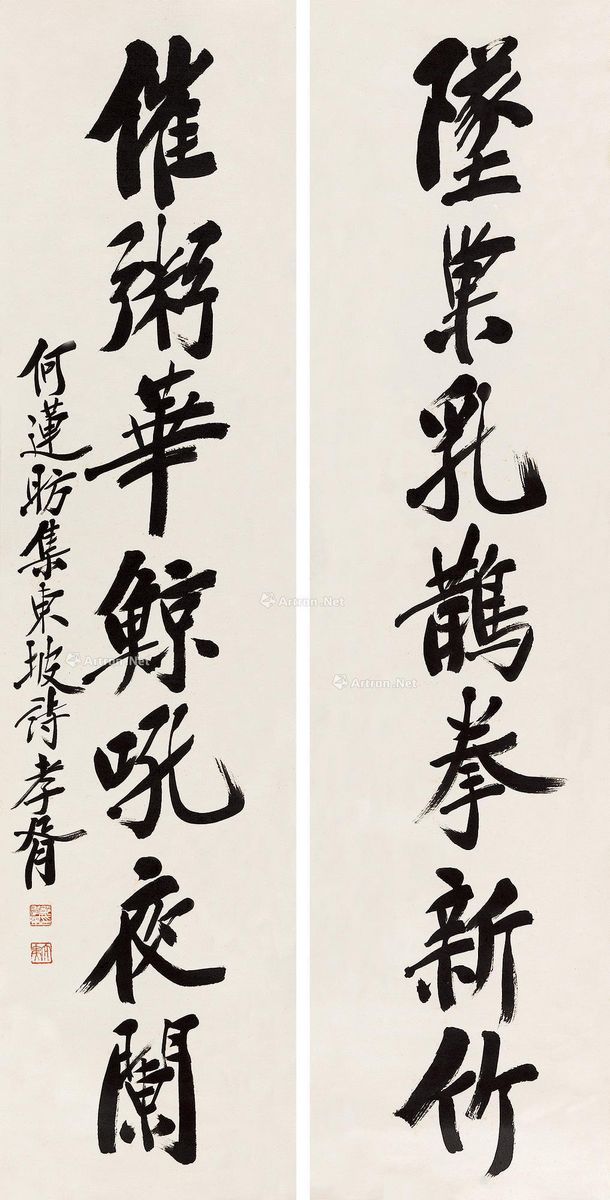 墜巢乳鵲拳新竹
催粥華鯨吼夜闌
何蓮舫集東坡詩 孝胥
Artron.Net
Artron.Net
Artron.Net